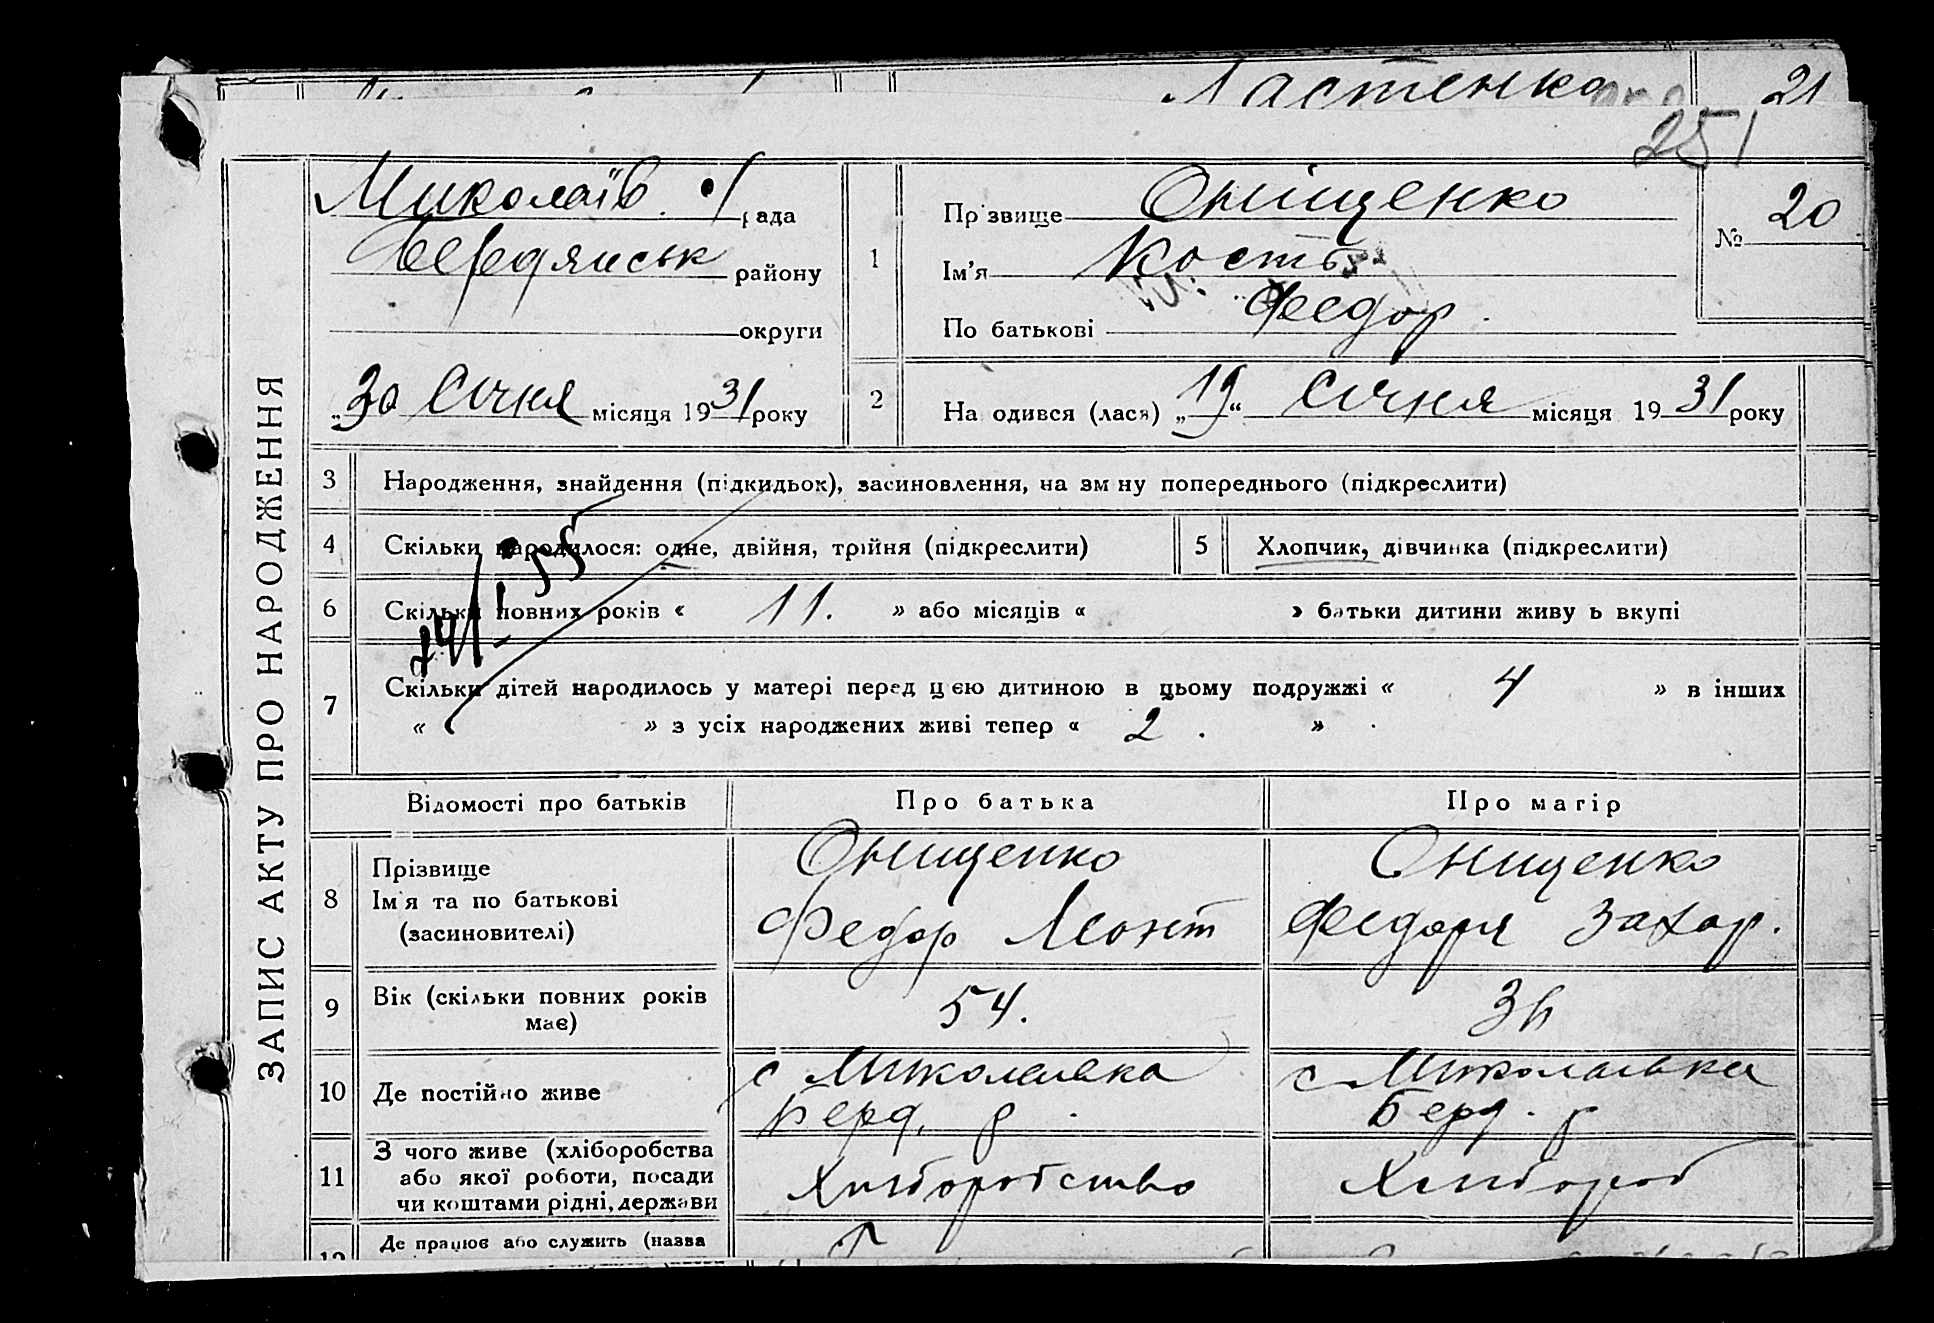 Ластенко 21
251
Миколаїв. рада
Бердянськ району
округи
„30 Січня місяця 1931 року
1
Прізвище Оніщенко
Ім'я Кость
По батькові Федор.
№ 20
2
На одився (лася) „19“ Січня місяця 1931 року
ЗАПИС АКТУ ПРО НАРОДЖЕННЯ
3 Народження, знайдення (підкидьок), засиновлення, на зм ну попереднього (підкреслити)
4 Скільки народилося: одне, двійня, трійня (підкреслити)
5 Хлопчик, дівчинка (підкреслити)
6 Скільки повних років « 11. » або місяців « » батьки дитини живу ь вкупі
7 Скільки дітей народилось у матері перед цією дитиною в цьому подружжі « 4 » в інших
« » з усіх народжених живі тепер « 2. »
Відомості про батьків Про батька Про матір
8 Прізвище
Ім'я та по батькові
(засиновителі)
Онищенко
Федор Леонт
Онищенко
Федоря Захар.
9 Вік (скільки повних років
має)
54.
36
10 Де постійно живе
с Миколаевка
Берд. р.
с Миколаівка
Берд. р
11 З чого живе (хліборобства
або якої роботи, посади
чи коштами рідні, держави
Хліборобство
Хлібороб
12 Де працює або служить (назва